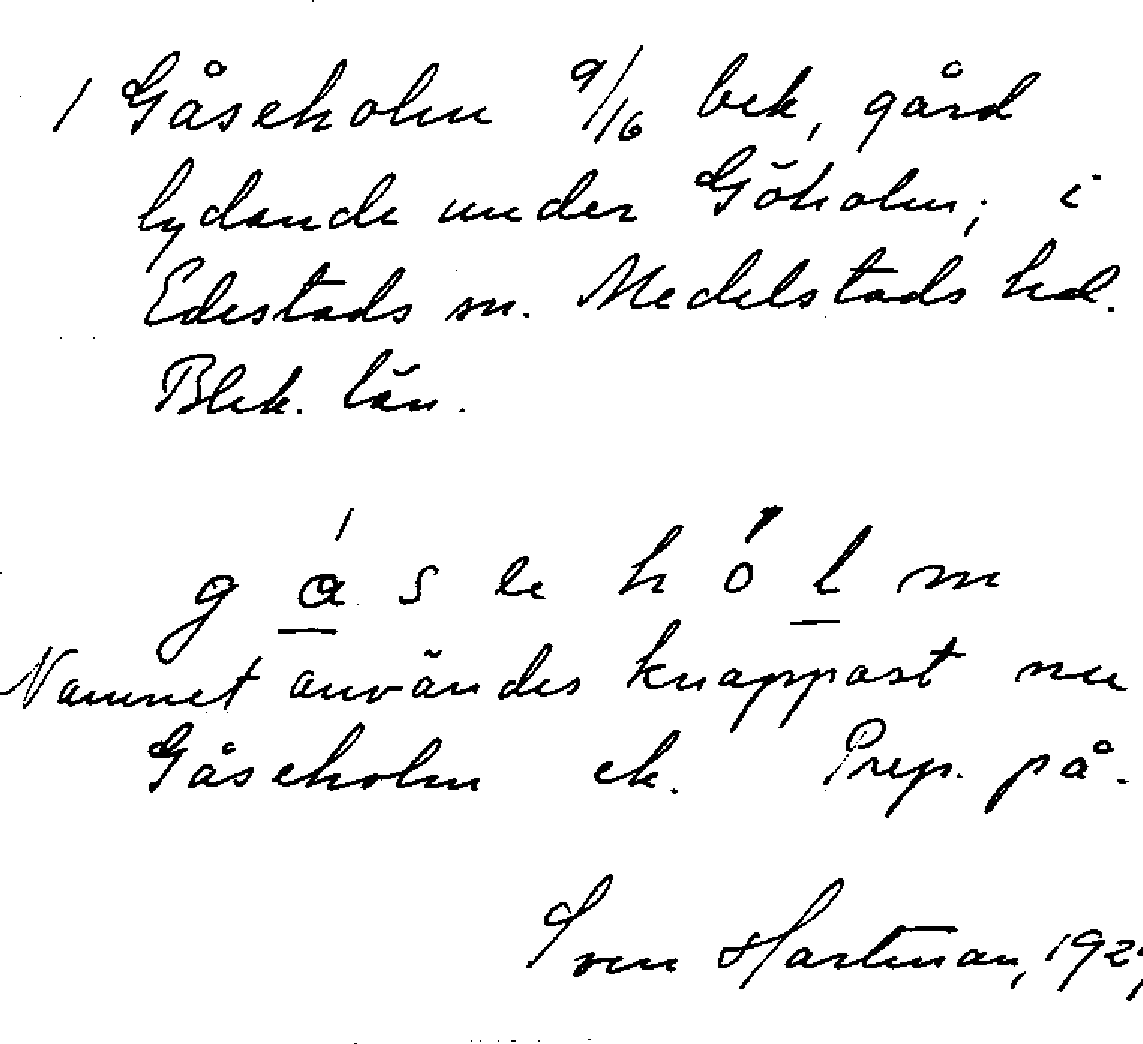 1 Gåseholm 9/16 bek, gård
lydande under Göholm; i
Edestads sn. Medelstads hd.
Blek. län.
Namnet användes knappast nu
Gåseholm ek. Prep. på.
Sven Hartman,